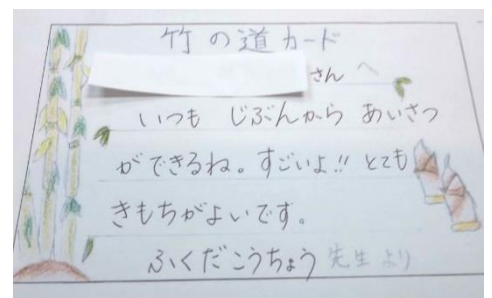 竹の道カード
さんへ
いつも じぶんから あいさつ
ができるね。すごいよ!! とても
きもちがよいです。
ふくだこうちょう先生より